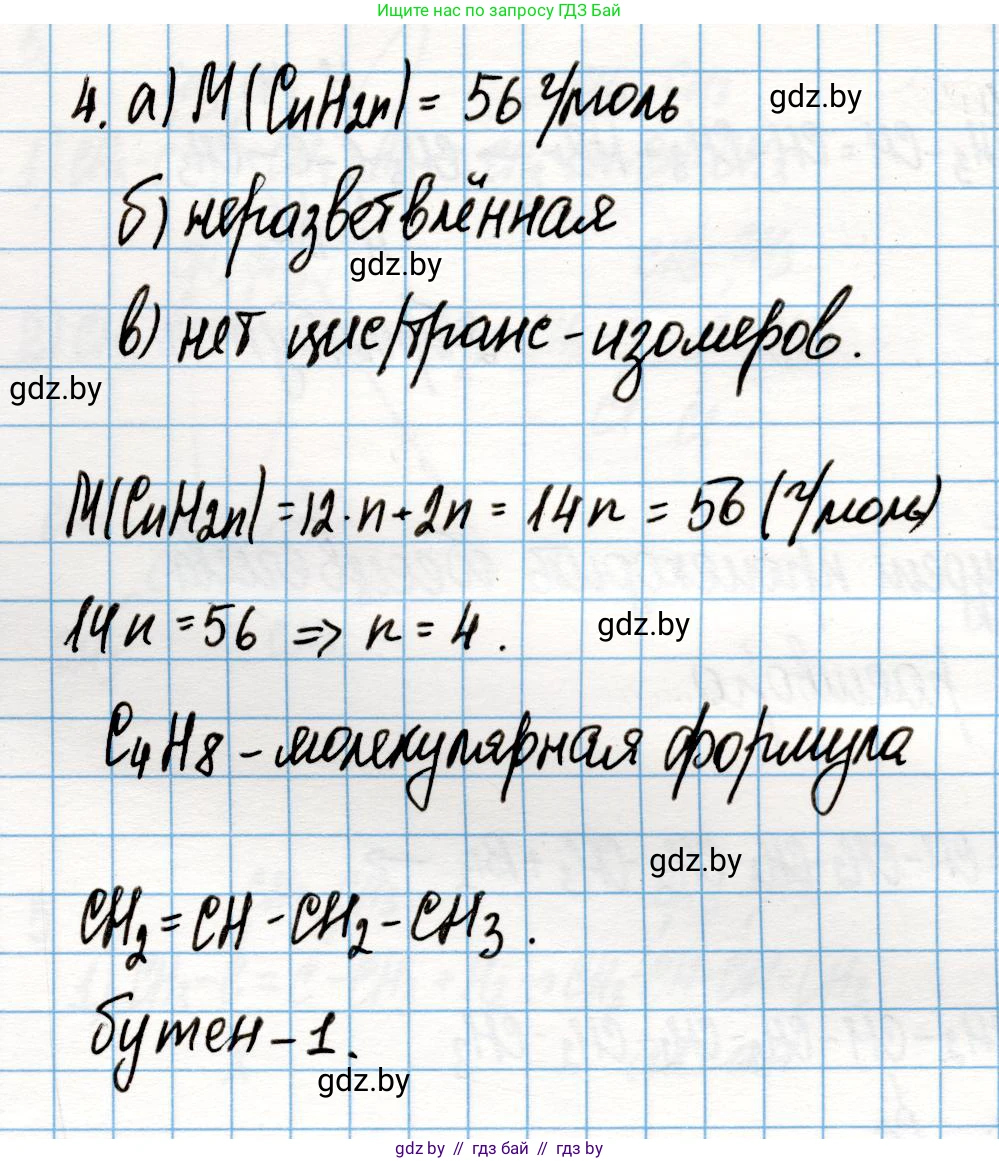 Ищите нас по запросу ГДЗ Бай
4. а) M(CnH2n) = 56 г/моль gdz.by
б) неразветвлённая
gdz.by
в) нет цис/транс-изомеров.
gdz.by
M(CnH2n) = 12·n+2n = 14n = 56 (г/моль)
14n = 56 => n = 4. gdz.by
C4H8 - молекулярная формула
gdz.by
CH2=CH-CH2-CH3.
бутен-1.
gdz.by
gdz.by // гдз бай // гдз by